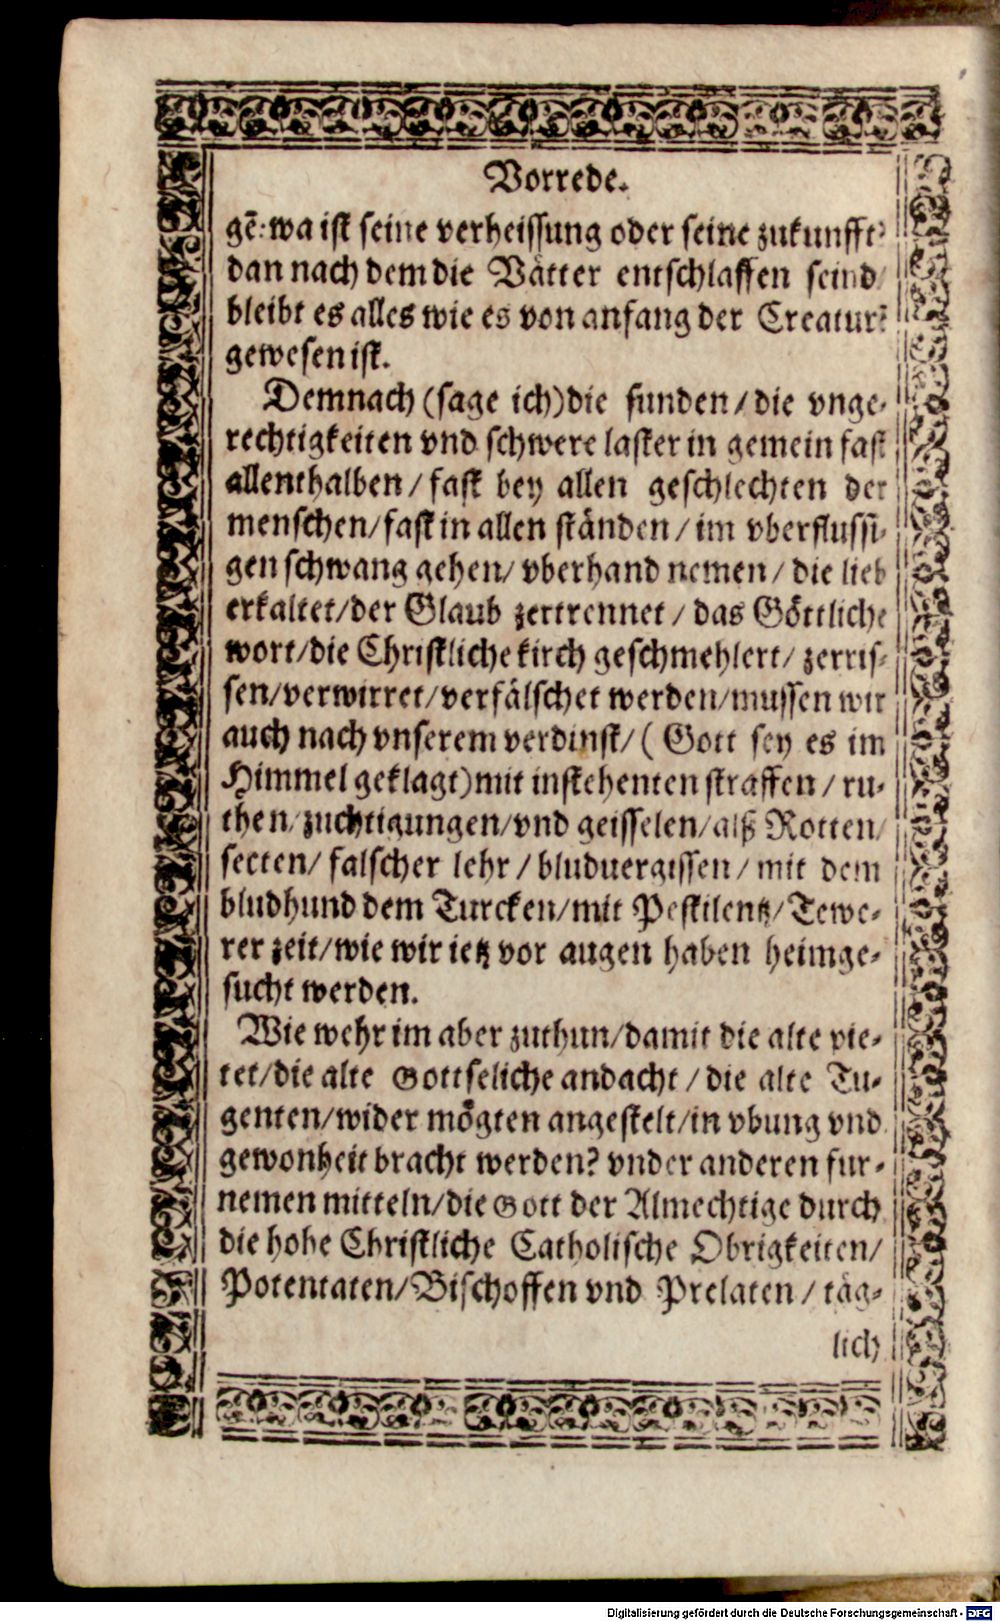 Vorrede.
gē: wa ist seine verheissung oder seine zukunfft?
dan nach dem die Vätter entschlaffen seind/
bleibt es alles wie es von anfang der Creaturē
gewesen ist.
Demnach (sage ich) die sunden / die vnge-
rechtigkeiten vnd schwere laster in gemein fast
allenthalben / fast bey allen geschlechten der
menschen/ fast in allen ständen / im vberflussi-
gen schwang gehen/ vberhand nemen / die lieb
erkaltet/ der Glaub zertrennet / das Göttliche
wort/ die Christliche kirch geschmehlert/ zerris-
sen/ verwirret/ verfälschet werden/ mussen wir
auch nach vnserem verdinst/ ( Gott sey es im
Himmel geklagt) mit instehenten straffen / ru-
then/ zuchtigungen/ vnd geisselen/ alß Rotten/
secten/ falscher lehr / bluduergissen / mit dem
bludhund dem Turcken/ mit Pestilentz/ Tewe-
rer zeit/ wie wir ietz vor augen haben heimge-
sucht werden.
Wie wehr im aber zuthun/ damit die alte pie-
tet/ die alte Gottseliche andacht / die alte Tu-
genten/ wider mögten angestelt/ in vbung vnd
gewonheit bracht werden? vnder anderen fur-
nemen mitteln/ die Gott der Almechtige durch
die hohe Christliche Catholische Obrigkeiten/
Potentaten/ Bischoffen vnd Prelaten / täg-
lich
Digitalisierung gefördert durch die Deutsche Forschungsgemeinschaft - DFG